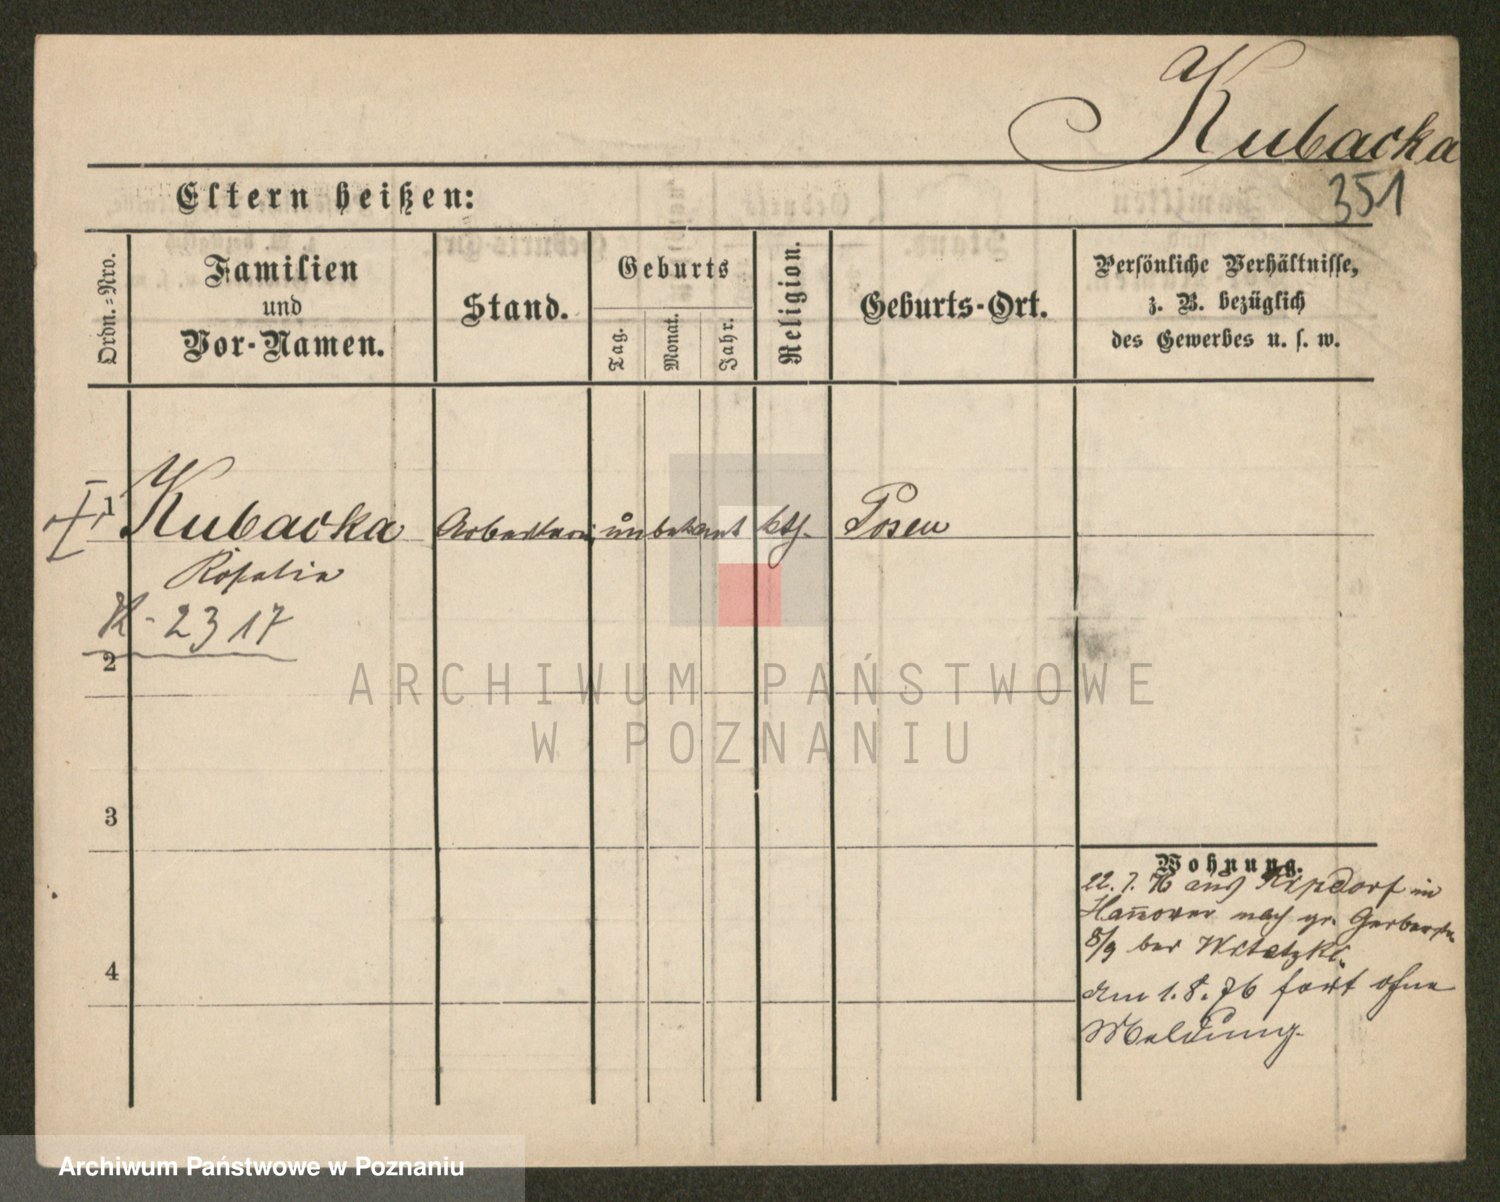 Kubacka
351
Eltern heißen:
Ordn.-Nro.
Familien
und
Vor-Namen.
Stand.
Geburts
Tag.
Monat.
Jahr.
Religion.
Geburts-Ort.
Persönliche Verhältnisse,
z. B. bezüglich
des Gewerbes u. s. w.
1 Kubacka Arbeiterin unbekant kth. Posen
Rosalia
K-2317
2
3
4
Wohnung.
22. 7. 76 aus in
Hannover nach gr. Gerberstr.
8/9 bei Witetzki.
Am 1. 8. 76 fort ohne
Meldung.
ARCHIWUM PAŃSTWOWE
W POZNANIU
Archiwum Państwowe w Poznaniu